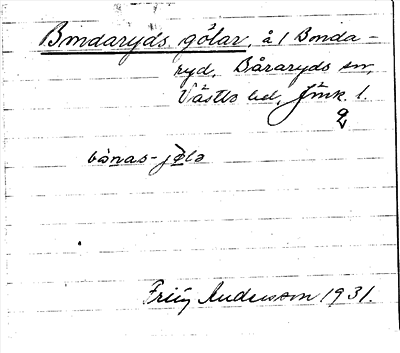 Bondaryds gölar, å / Bonda-
ryd, Båraryds sn,
Västbo hd, Jönk. l.
bònas-jǿla
Frieg Andersson 1931.